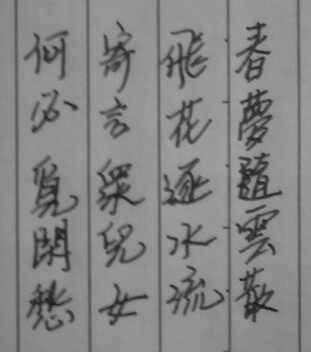 春夢隨雲散
飛花逐水流
寄言眾兒女
何必覓閒愁